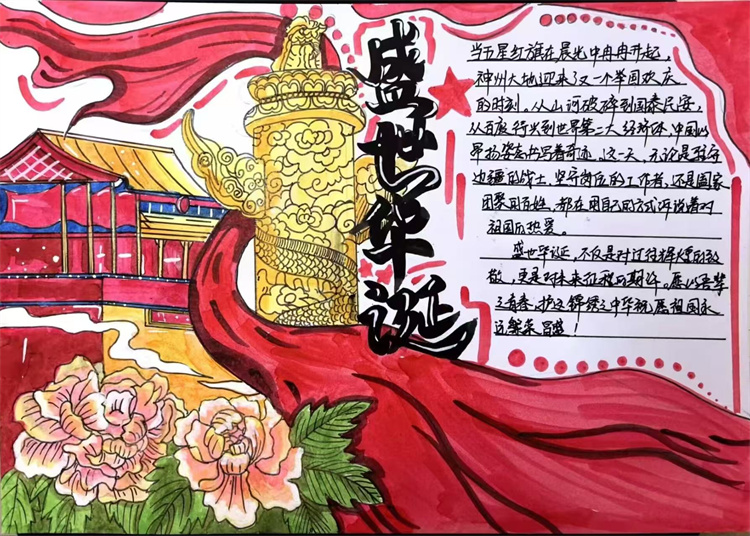 盛世华诞
当五星红旗在晨光中冉冉升起，
神州大地迎来又一个举国欢庆
的时刻。从山河破碎到国泰民安，
从百废待兴到世界第二大经济体，中国以
昂扬姿态书写着奇迹。这一天，无论是驻守
边疆的战士，坚守岗位的工作者，还是阖家
团聚的百姓，都在用自己的方式诉说着对
祖国的热爱。
盛世华诞，不仅是对过往辉煌的致
敬，更是对未来征程的期许。愿以吾辈
之青春，护这锦绣之中华，祝愿祖国永
远繁荣昌盛！